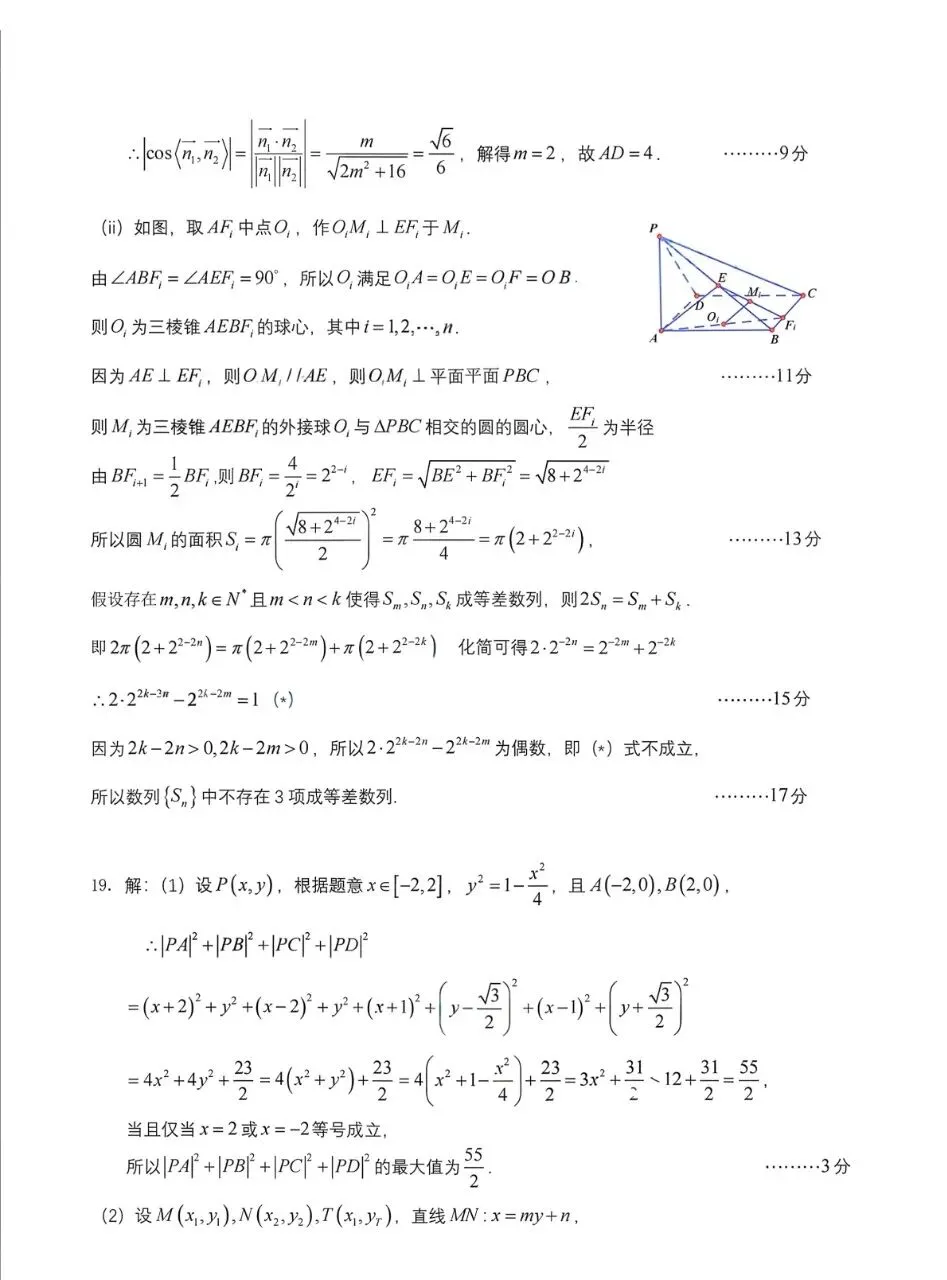 ∴|cos⟨n₁,n₂⟩|=|n₁·n₂/(|n₁||n₂|)|=m/√(2m²+16)=√6/6，解得m=2，故AD=4. ………9分
（ii）如图，取AFᵢ中点Oᵢ，作OᵢMᵢ⊥EFᵢ于Mᵢ.
由∠ABFᵢ=∠AEFᵢ=90°，所以Oᵢ满足OᵢA=OᵢE=OᵢF=O B.
则Oᵢ为三棱锥AEBFᵢ的球心，其中i=1,2,…,n.
因为AE⊥EFᵢ，则O Mᵢ//AE，则OᵢMᵢ⊥平面平面PBC， ………11分
P
E
Mᵢ
C
D
Oᵢ
Fᵢ
A
B
则Mᵢ为三棱锥AEBFᵢ的外接球Oᵢ与ΔPBC相交的圆的圆心，EFᵢ/2为半径
由BFᵢ₊₁=1/2 BFᵢ,则BFᵢ=4/2ⁱ=2²⁻ⁱ，EFᵢ=√(BE²+BFᵢ²)=√(8+2⁴⁻²ⁱ)
所以圆Mᵢ的面积Sᵢ=π(√(8+2⁴⁻²ⁱ)/2)²=π(8+2⁴⁻²ⁱ)/4=π(2+2²⁻²ⁱ)， ………13分
假设存在m,n,k∈N*且m<n<k使得Sₘ,Sₙ,Sₖ成等差数列，则2Sₙ=Sₘ+Sₖ.
即2π(2+2²⁻²ⁿ)=π(2+2²⁻²ᵐ)+π(2+2²⁻²ᵏ) 化简可得2·2⁻²ⁿ=2⁻²ᵐ+2⁻²ᵏ
∴2·2²ᵏ⁻²ⁿ−2²ᵏ⁻²ᵐ=1（*） ………15分
因为2k−2n>0,2k−2m>0，所以2·2²ᵏ⁻²ⁿ−2²ᵏ⁻²ᵐ为偶数，即（*）式不成立，
所以数列{Sₙ}中不存在3项成等差数列. ………17分
19. 解：（1）设P(x,y)，根据题意x∈[−2,2]，y²=1−x²/4，且A(−2,0),B(2,0)，
∴|PA|²+|PB|²+|PC|²+|PD|²
=(x+2)²+y²+(x−2)²+y²+(x+1)²+(y−√3/2)²+(x−1)²+(y+√3/2)²
=4x²+4y²+23/2=4(x²+y²)+23/2=4(x²+1−x²/4)+23/2=3x²+31/2、12+31/2=55/2，
当且仅当x=2或x=−2等号成立，
所以|PA|²+|PB|²+|PC|²+|PD|²的最大值为55/2. ………3分
（2）设M(x₁,y₁),N(x₂,y₂),T(x₁,y_T)，直线MN:x=my+n，